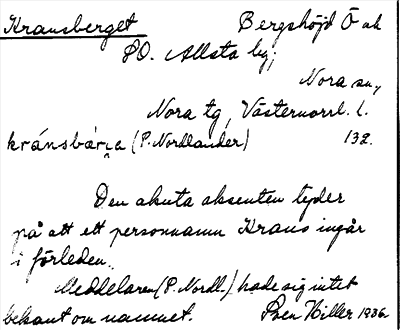 Kransberget Bergshöjd Ö ok
SO. Allsta by;
Nora sn,
Nora tg, Västernorrl. l.
kránsbárⁱa (P. Nordlander) 132.
Den akuta aksenten tyder
på att ett personnamn Krans ingår
i förleden.
Meddelaren (P. Nordl.) hade sig intet
bekant om namnet. Sven Hiller 1936.